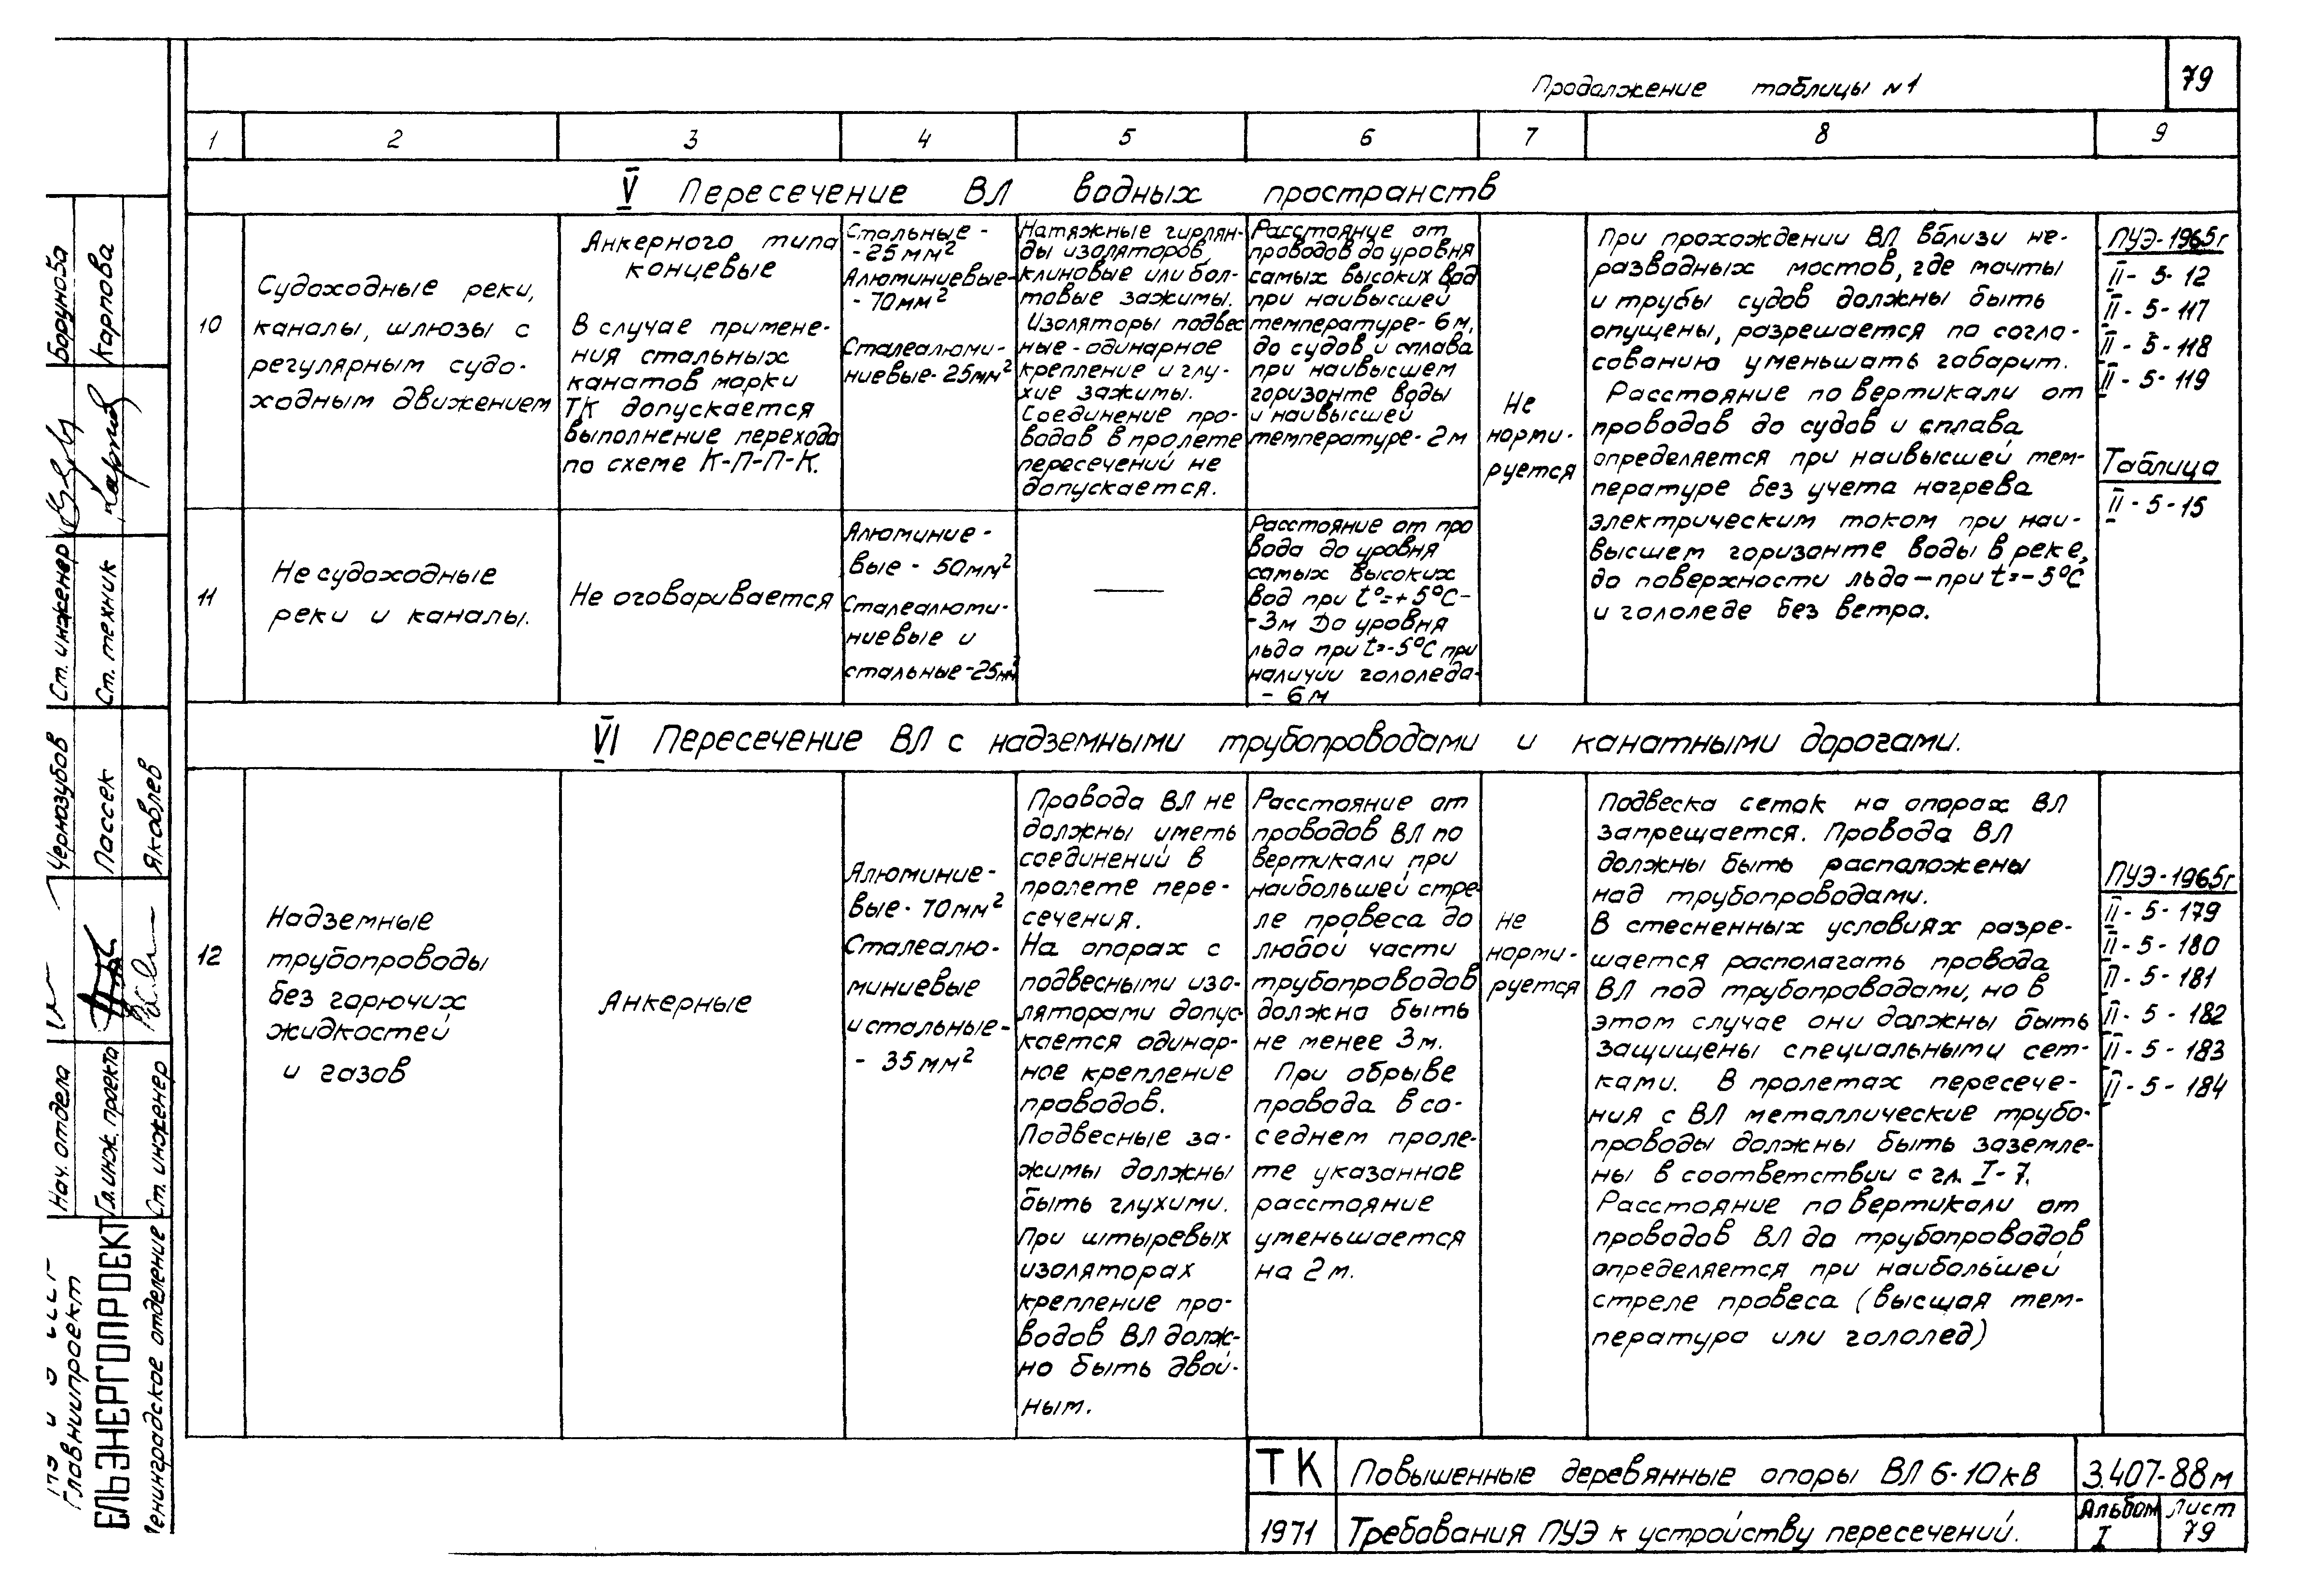 Продолжение таблицы №1
79
1 2 3 4 5 6 7 8 9
V Пересечение ВЛ водных пространств
10
Судоходные реки,
каналы, шлюзы с
регулярным судо-
ходным движением
Анкерного типа
концевые
В случае примене-
ния стальных
канатов марки
ТК допускается
выполнение перехода
по схеме К-П-П-К.
Стальные -
- 25 мм²
Алюминиевые-
- 70 мм²
Сталеалюми-
ниевые- 25мм²
Натяжные гирлян-
ды изоляторов,
клиновые или бол-
товые зажимы.
Изоляторы подвес
ные - одинарное
крепление и глу-
хие зажимы.
Соединение про-
водов в пролете
пересечений не
допускается.
Расстояние от
проводов до уровня
самых высоких вод
при наивысшей
температуре- 6 м,
до судов и сплава
при наивысшем
горизонте воды
и наивысшей
температуре- 2 м
Не
норми-
руется
При прохождении ВЛ вблизи не-
разводных мостов, где мачты
и трубы судов должны быть
опущены, разрешается по согла-
сованию уменьшать габарит.
Расстояние по вертикали от
проводов до судов и сплава
определяется при наивысшей тем-
пературе без учета нагрева
электрическим током при наи-
высшем горизонте воды в реке,
до поверхности льда – при t=-5°С
и гололеде без ветра.
ПУЭ-1965г
II- 5- 12
II- 5- 117
II- 5- 118
II- 5- 119
Таблица
II- 5- 15
11
Не судоходные
реки и каналы.
Не оговаривается
Алюминие-
вые - 50мм²
Сталеалюми-
ниевые и
стальные-25мм²
—
Расстояние от про
вода до уровня
самых высоких
вод при t°=+5°С-
-3м До уровня
льда при t=-5°С при
наличии гололеда-
- 6 м
VI Пересечение ВЛ с надземными трубопроводами и канатными дорогами.
12
Надземные
трубопроводы
без горючих
жидкостей
и газов
Анкерные
Алюминие-
вые- 70мм²
Сталеалю-
миниевые
и стальные-
- 35 мм²
Провода ВЛ не
должны иметь
соединений в
пролете пере-
сечения.
На опорах с
подвесными изо-
ляторами допус-
кается одинар-
ное крепление
проводов.
Подвесные за-
жимы должны
быть глухими.
При штыревых
изоляторах
крепление про-
водов ВЛ долж-
но быть двой-
ным.
Расстояние от
проводов ВЛ по
вертикали при
наибольшей стре-
ле провеса до
любой части
трубопроводов
должно быть
не менее 3м.
При обрыве
провода в со-
седнем проле-
те указанное
расстояние
уменьшается
на 2 м.
Не
норми-
руется
Подвеска сеток на опорах ВЛ
запрещается. Провода ВЛ
должны быть расположены
над трубопроводами.
В стесненных условиях разре-
шается располагать провода
ВЛ под трубопроводами, но в
этом случае они должны быть
защищены специальными сет-
ками. В пролетах пересече-
ния с ВЛ металлические трубо-
проводы должны быть заземле-
ны в соответствии с гл. I-7.
Расстояние по вертикали от
проводов ВЛ до трубопроводов
определяется при наибольшей
стреле провеса (высшая тем-
пература или гололед)
ПУЭ-1965г
II- 5 - 179
II- 5 - 180
II- 5 - 181
II- 5 - 182
II- 5 - 183
II- 5 - 184
ТК Повышенные деревянные опоры ВЛ 6-10кВ 3.407-88м
1971 Требования ПУЭ к устройству пересечений. Альбом I Лист 79
Главниипроект
ЕЛЬЭНЕРГОПРОЕКТ
Ленинградское отделение
Нач. отдела Чернозубов Ст. инженер Борунова
Гл. инж. проекта Пассек Ст. техник Карпова
Ст. инженер Яковлев